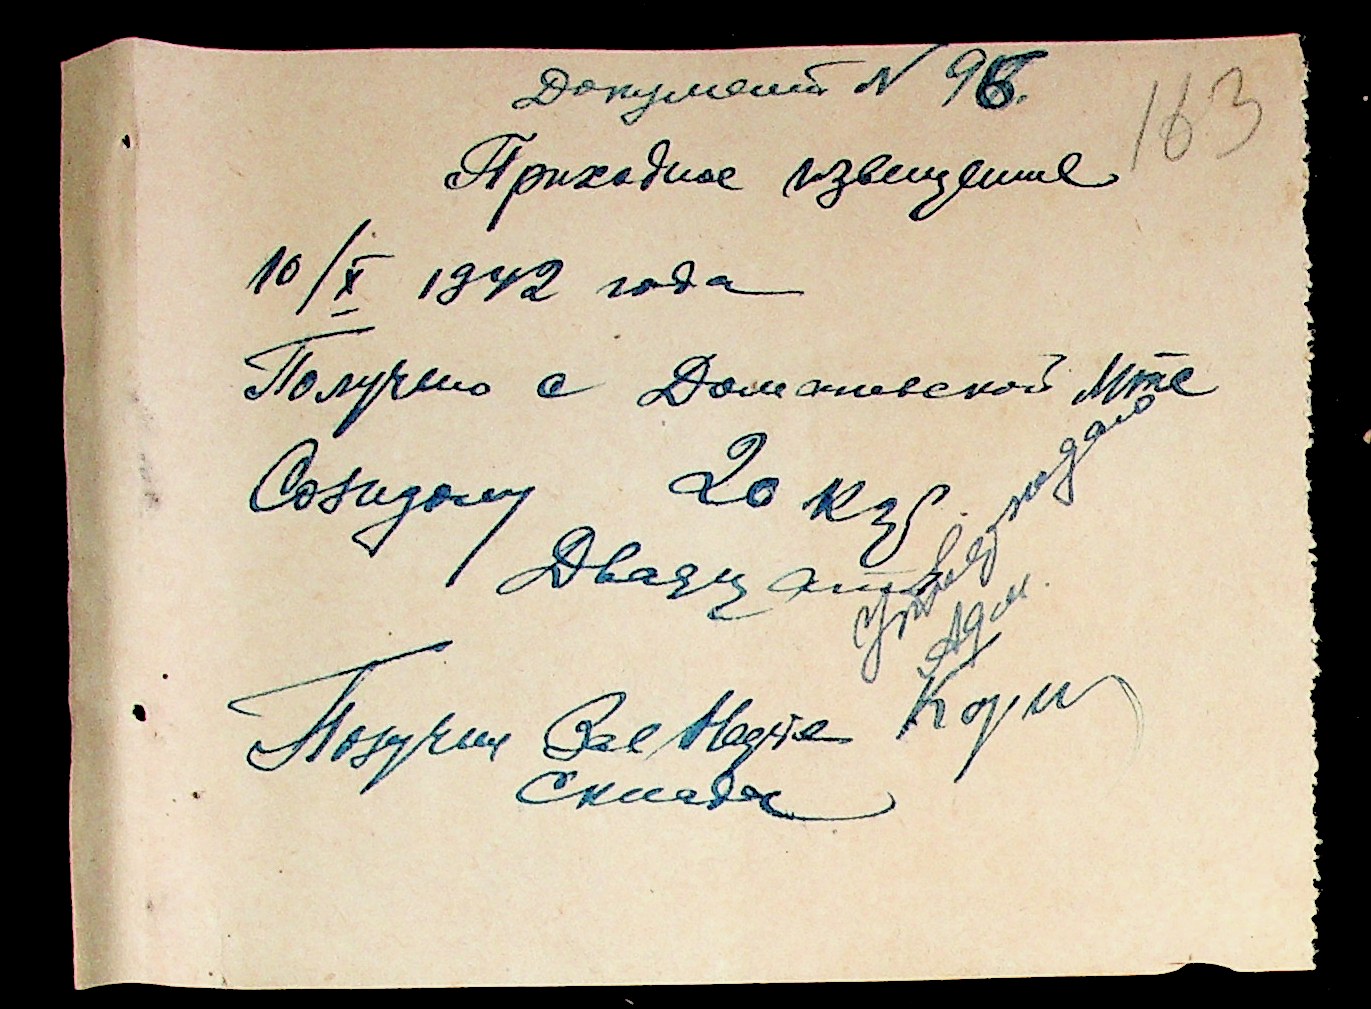 Документ N 96.
163
Приходное извещение
10/X 1942 года
Получено с Доманевской Мтс
Солидолу 20 кгр
Двадцать
Получил Зав Нефте
склада
Адм.